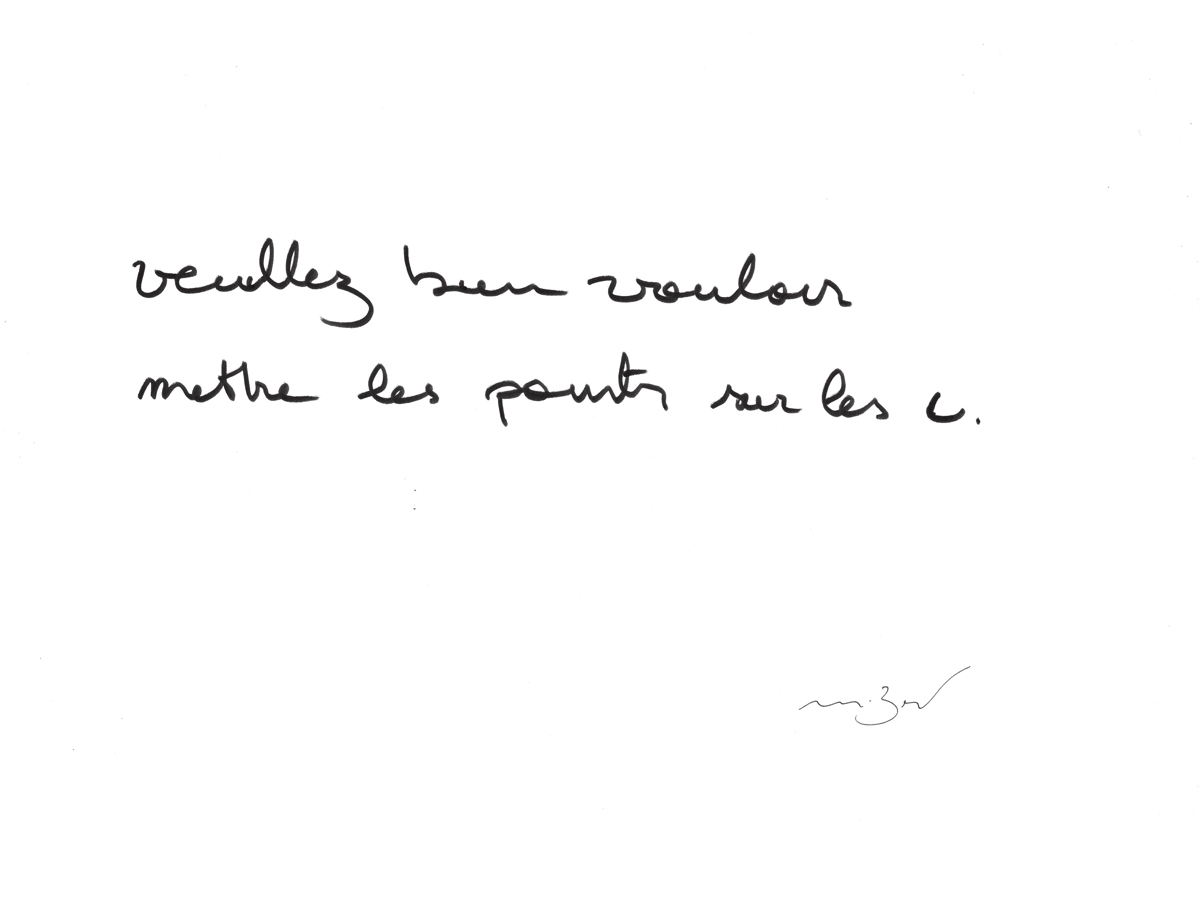 veuıllez bıen vouloır
mettre les poınts sur les ı.